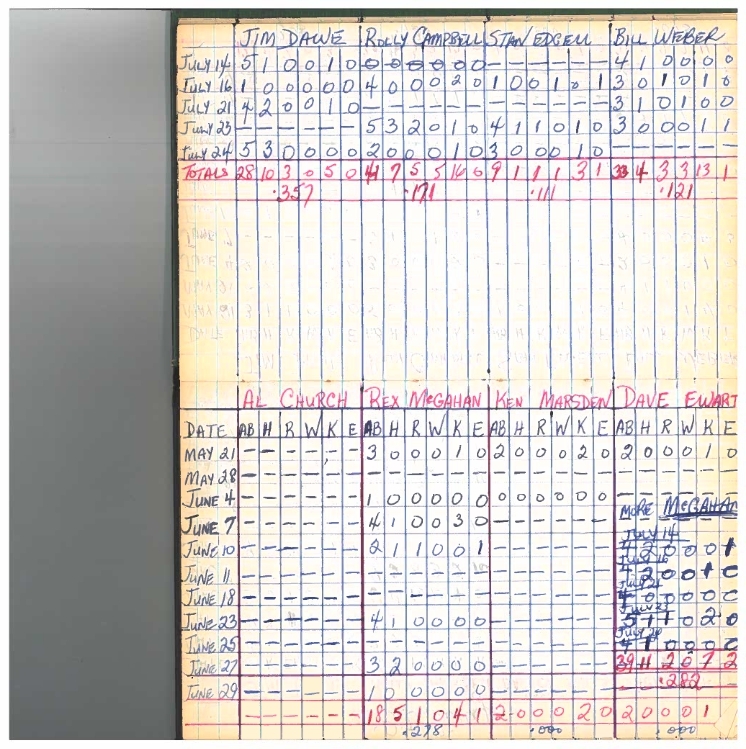 JIM DAWE ROLLY CAMPBELL STAN EDGELL BILL WEBER
JULY 14 5 1 0 0 1 0 0 0 0 0 0 0 - - - - - - 4 1 0 0 0 0
JULY 16 1 0 0 0 0 0 4 0 0 0 2 0 1 0 0 1 0 1 3 0 1 0 1 0
JULY 21 4 2 0 0 1 0 - - - - - - - - - - - - 3 1 0 1 0 0
JULY 23 - - - - - - 5 3 2 0 1 0 4 1 1 0 1 0 3 0 0 0 1 1
JULY 24 5 3 0 0 0 0 2 0 0 0 1 0 3 0 0 0 1 0 - - - - - -
TOTALS 28 10 3 0 5 0 41 7 5 5 16 0 9 1 1 1 3 1 33 4 3 3 13 1
.357 .171 .111 .121
AL CHURCH REX McGAHAN KEN MARSDEN DAVE EWART
DATE AB H R W K E AB H R W K E AB H R W K E AB H R W K E
MAY 21 - - - - - - 3 0 0 0 1 0 2 0 0 0 2 0 2 0 0 0 1 0
MAY 28 - - - - - - - - - - - - - - - - - - - - - - - -
JUNE 4 - - - - - - 1 0 0 0 0 0 0 0 0 0 0 0 - - - - - -
MORE McGAHAN
JUNE 7 - - - - - - 4 1 0 0 3 0 - - - - - -
JULY 14
JUNE 10 - - - - - - 2 1 1 0 0 1 - - - - - - 4 2 0 0 0 1
JULY 16
JUNE 11 - - - - - - - - - - - - - - - - - - 4 2 0 0 1 0
JULY 21
JUNE 18 - - - - - - - - - - - - - - - - - - 4 0 0 0 0 0
JULY 23
JUNE 23 - - - - - - 4 1 0 0 0 0 - - - - - - 5 1 1 0 2 0
JUNE 25 - - - - - - - - - - - - - - - - - - 4 1 0 0 0 0
JUNE 27 - - - - - - 3 2 0 0 0 0 - - - - - - 39 11 2 0 7 2
.282
JUNE 29 - - - - - - 1 0 0 0 0 0 - - - - - -
- - - - - - 18 5 1 0 4 1 2 0 0 0 2 0 2 0 0 0 1
.278 .000 .000